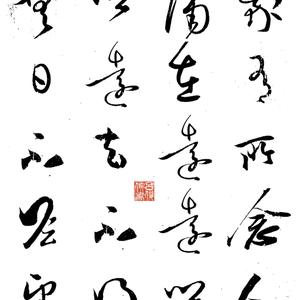 我有所念人
隔在遠遠鄉
鄉遠去不得
無日不瞻望